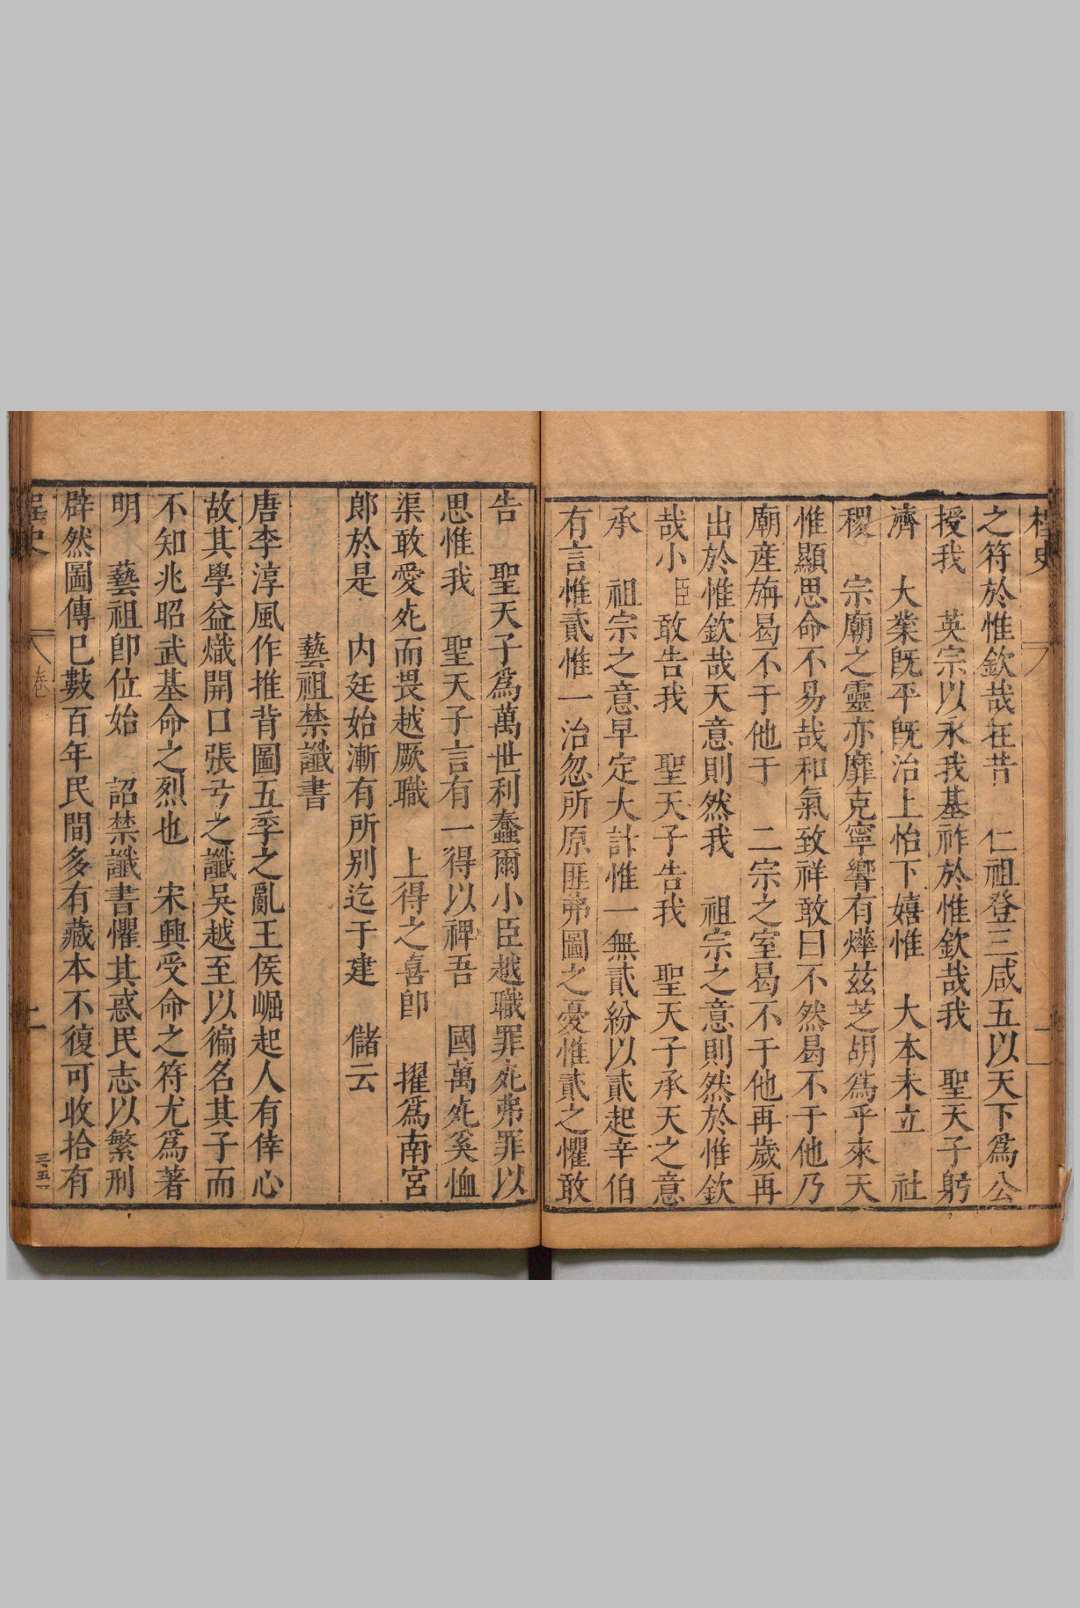 桯史
之符於惟欽哉在昔　仁祖登三咸五以天下爲公
授我　英宗以永我基祚於惟欽哉我　聖天子躬
濟　大業旣平旣治上怡下嬉惟　大本未立　社
稷　宗廟之靈亦靡克寧響有爗兹芝胡爲乎來天
惟顯思命不易哉和氣致祥敢曰不然曷不于他乃
廟產旃曷不于他于　二宗之室曷不于他再歲再
出於惟欽哉天意則然我　祖宗之意則然於惟欽
哉小臣敢告我　聖天子告我　聖天子承天之意
承　祖宗之意早定大計惟一無貳紛以貳起辛伯
有言惟貳惟一治忽所原匪弗圖之憂惟貳之懼敢
告　聖天子爲萬世利蠢爾小臣越職罪死弗罪以
思惟我　聖天子言有一得以裨吾　國萬死奚恤
渠敢愛死而畏越厥職　上得之喜卽　擢爲南宮
郎於是　内廷始漸有所别迄于建　儲云
藝祖禁讖書
唐李淳風作推背圖五季之亂王侯崛起人有倖心
故其學益熾開口張弓之讖吳越至以徧名其子而
不知兆昭武基命之烈也　宋興受命之符尤爲著
明　藝祖卽位始　詔禁讖書懼其惑民志以繁刑
辟然圖傳巳數百年民間多有藏本不復可收拾有
桯史　卷一